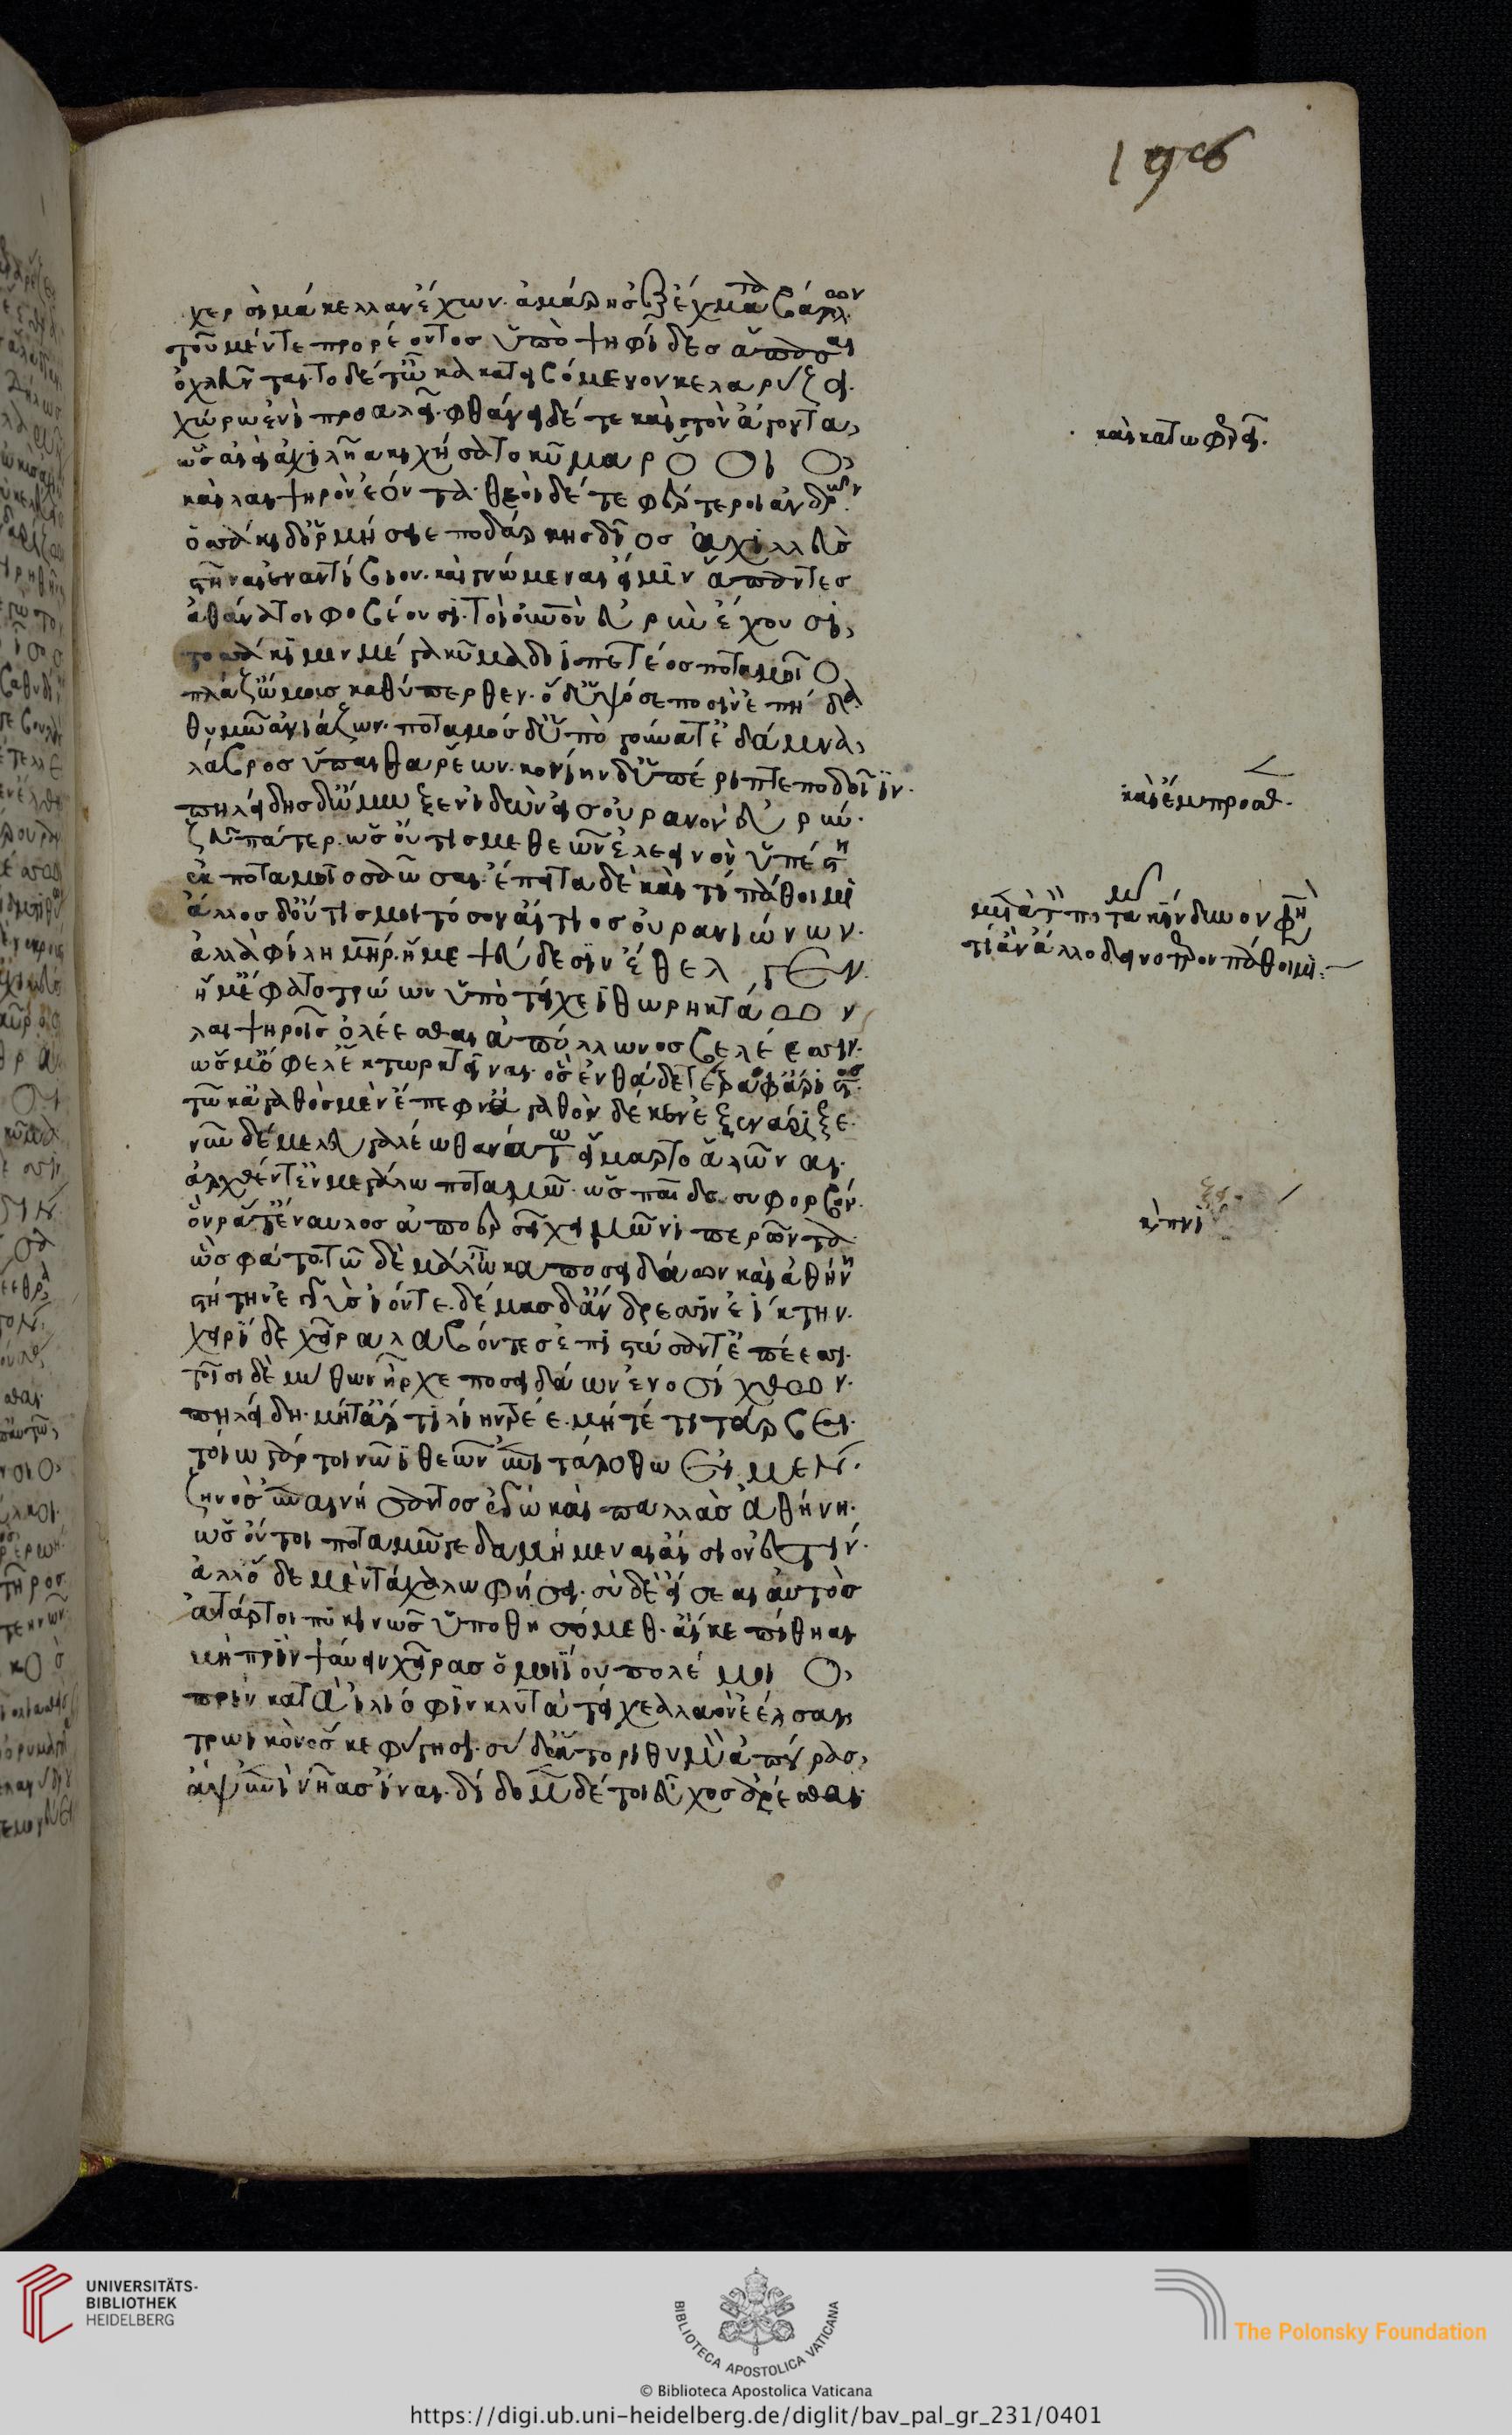 196
χερσὶ μάκελλαν ἔχων· ἀμάρης ἐξ ἔχματα βάλλων
τοῦ μέν τε προρέοντος ὑπὸ ψηφίδες ἅπασαι
ὀχλεῦνται· τὸ δέ τ' ὦκα κατειβόμενον κελαρύζει·
χώρω ἐνὶ προαλεῖ· φθάνει δέ τε καὶ τὸν ἄγοντα,
ὣς αἰεὶ ἀχιλῆα κιχήσατο κῦμα ῥόοιο,
καὶ λαιψηρὸν ἐόντα· θεοὶ δέ τε φέρτεροι ἀνδρῶν·
ὁσσάκι δ' ὁρμήσειε ποδάρκης δῖος ἀχιλλεὺς
στῆναι ἐναντίβιον· καὶ γνώμεναι εἴ μιν ἅπαντες
ἀθάνατοι φοβέουσι· τοὶ οὐρανὸν εὐρὺν ἔχουσι,
τοσσάκι μιν μέγα κῦμα διιπετέος ποταμοῖο
πλάζ' ὤμους καθύπερθεν· ὁ δ' ὑψόσε ποσὶν ἐπήδα
θυμῶ ἀνιάζων· ποταμὸς δ' ὑπὸ γούνατ' ἐδάμνα,
λάβρος ὕπαιθα ῥέων· κονίην δ' ὑπέρεπτε ποδοῖϊν·
πηλείδης δ' ᾤμωξεν ἰδὼν εἰς οὐρανὸν εὐρύν·
ζεῦ πάτερ· ὡς οὔτις με θεῶν ἐλεεινὸν ὑπέστη
ἐκ ποταμοῖο σαῶσαι· ἔπειτα δὲ καί τι πάθοιμι
ἄλλος δ' οὔτις μοι τόσον αἴτιος οὐρανιώνων·
ἀλλὰ φίλη μήτηρ· ἥ με ψεύδεσιν ἔθελγεν·
ἥ μ' ἔφατο τρώων ὑπὸ τείχεϊ θωρηκτάων
λαιψηροῖς ὀλέεσθαι ἀπόλλωνος βελέεσσιν·
ὥς μ' ὄφελ' ἕκτωρ κτεῖναι· ὃς ἐνθάδε τέτραφ' ἄριστος·
τῶ κ' ἀγαθὸς μὲν ἔπεφν' ἀγαθὸν δέ κεν ἐξενάριξε·
νῦν δέ με λευγαλέω θανάτω εἵμαρτο ἁλῶναι·
ἐρχθέντ' ἐν μεγάλω ποταμῶ· ὡς παῖδα συφορβόν·
ὅν ῥά τ' ἔναυλος ἀποέρσῃ χειμῶνι περῶντα·
ὣς φάτο· τῶ δὲ μάλ' ὦκα ποσειδάων καὶ ἀθήνη
στήτην ἐγγὺς ἰόντε· δέμας δ' ἄνδρεσσιν ἐΐκτην·
χειρὶ δὲ χεῖρα λαβόντες ἐπιστώσαντ' ἐπέεσσι·
τοῖσι δὲ μύθων ἦρχε ποσειδάων ἐνοσίχθων·
πηλείδη· μήτ' ἄρ τι λίην τρέε· μήτέ τι τάρβει·
τοίω γάρ τοι νῶϊ θεῶν ἐπιταρρόθω εἰμέν·
ζηνὸς ἐπαινήσαντος ἐγὼ καὶ παλλὰς ἀθήνη·
ὡς οὔ τοι ποταμῶ γε δαμήμεναι αἴσιόν ἐστιν·
ἀλλ' ὅδε μὲν τάχα λωφήσει· σὺ δὲ εἴσεαι αὐτός
αὐτάρ τοι πυκινῶς ὑποθησόμεθ' αἴ κε πίθηαι
μὴ πρὶν παύειν χεῖρας ὁμοιΐου πολέμοιο,
πρὶν κατὰ ἰλιόφιν κλυτὰ τείχεα λαὸν ἐέλσαι,
τρωϊκὸν ὅς κε φύγησι· σὺ δ' ἕκτορι θυμὸν ἀπούρας,
ἂψ ἐπὶ νῆας ἴναι· δίδομεν δέ τοι εὖχος ἀρέσθαι·
καὶ κατωφερεῖ·
καὶ ἔμπροσθ·
μετὰ τ ποτα κίνδυνον φη
τί ἂν ἄλλο δεινότερον πάθοιμι:
UNIVERSITÄTS-
BIBLIOTHEK
HEIDELBERG
BIBLIOTECA APOSTOLICA VATICANA
The Polonsky Foundation
© Biblioteca Apostolica Vaticana
https://digi.ub.uni-heidelberg.de/diglit/bav_pal_gr_231/0401